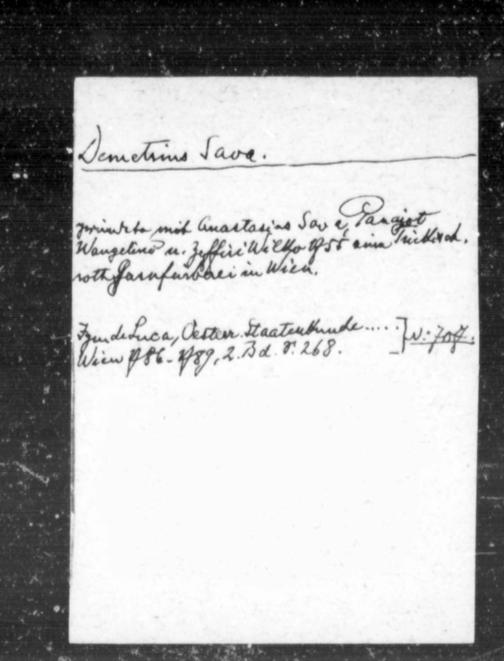 Demetrius Sava.
gründete mit Anastasius Sava, Panajot
Wangelino u. Zyffiri Wilko 1755 eine Türkisch.
roth Garnfärberei in Wien.
Ign. de Luca, Oester. Staatenkunde.....
Wien 1786-1789, 2. Bd. S. 268.